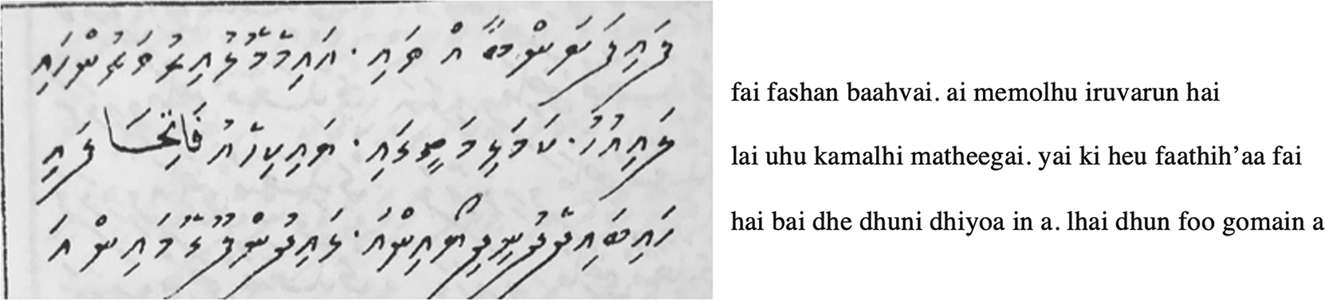 ފައިފަށަންބާއް ވައި. އައިމެމޮޅުއިރުވަރުންހައި
ލައިއުހު. ކަމަޅިމަތީގައި. ޔައިކިހެއު فَاتِحَا ފައި
ހައިބައިދެދުނިދިޔޯއިންއަ. ޅައިދުންފޫގޮމައިން އަ
fai fashan baahvai. ai memolhu iruvarun hai
lai uhu kamalhi matheegai. yai ki heu faathih’aa fai
hai bai dhe dhuni dhiyoa in a. lhai dhun foo gomain a